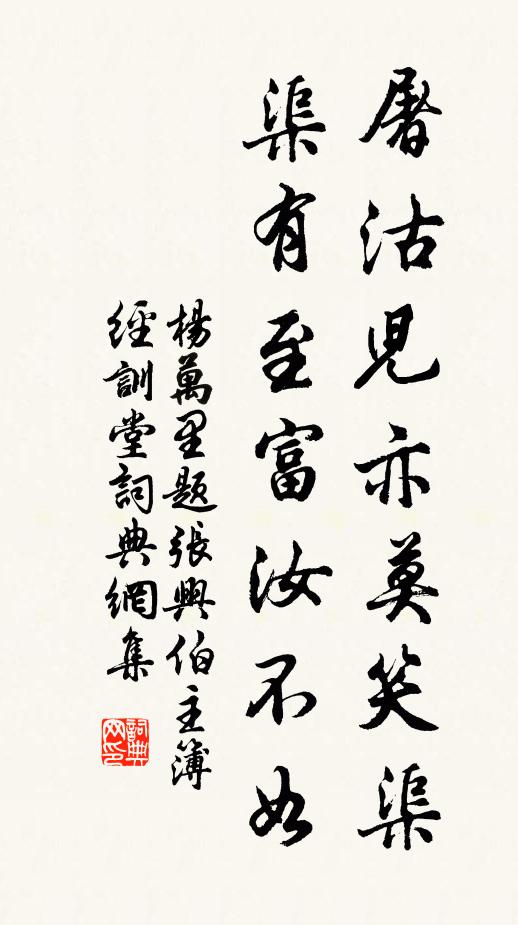 屠沽兒亦莫笑渠
渠有至富汝不如
楊萬里題張興伯主簿
經訓堂詞典網集
詞典網印